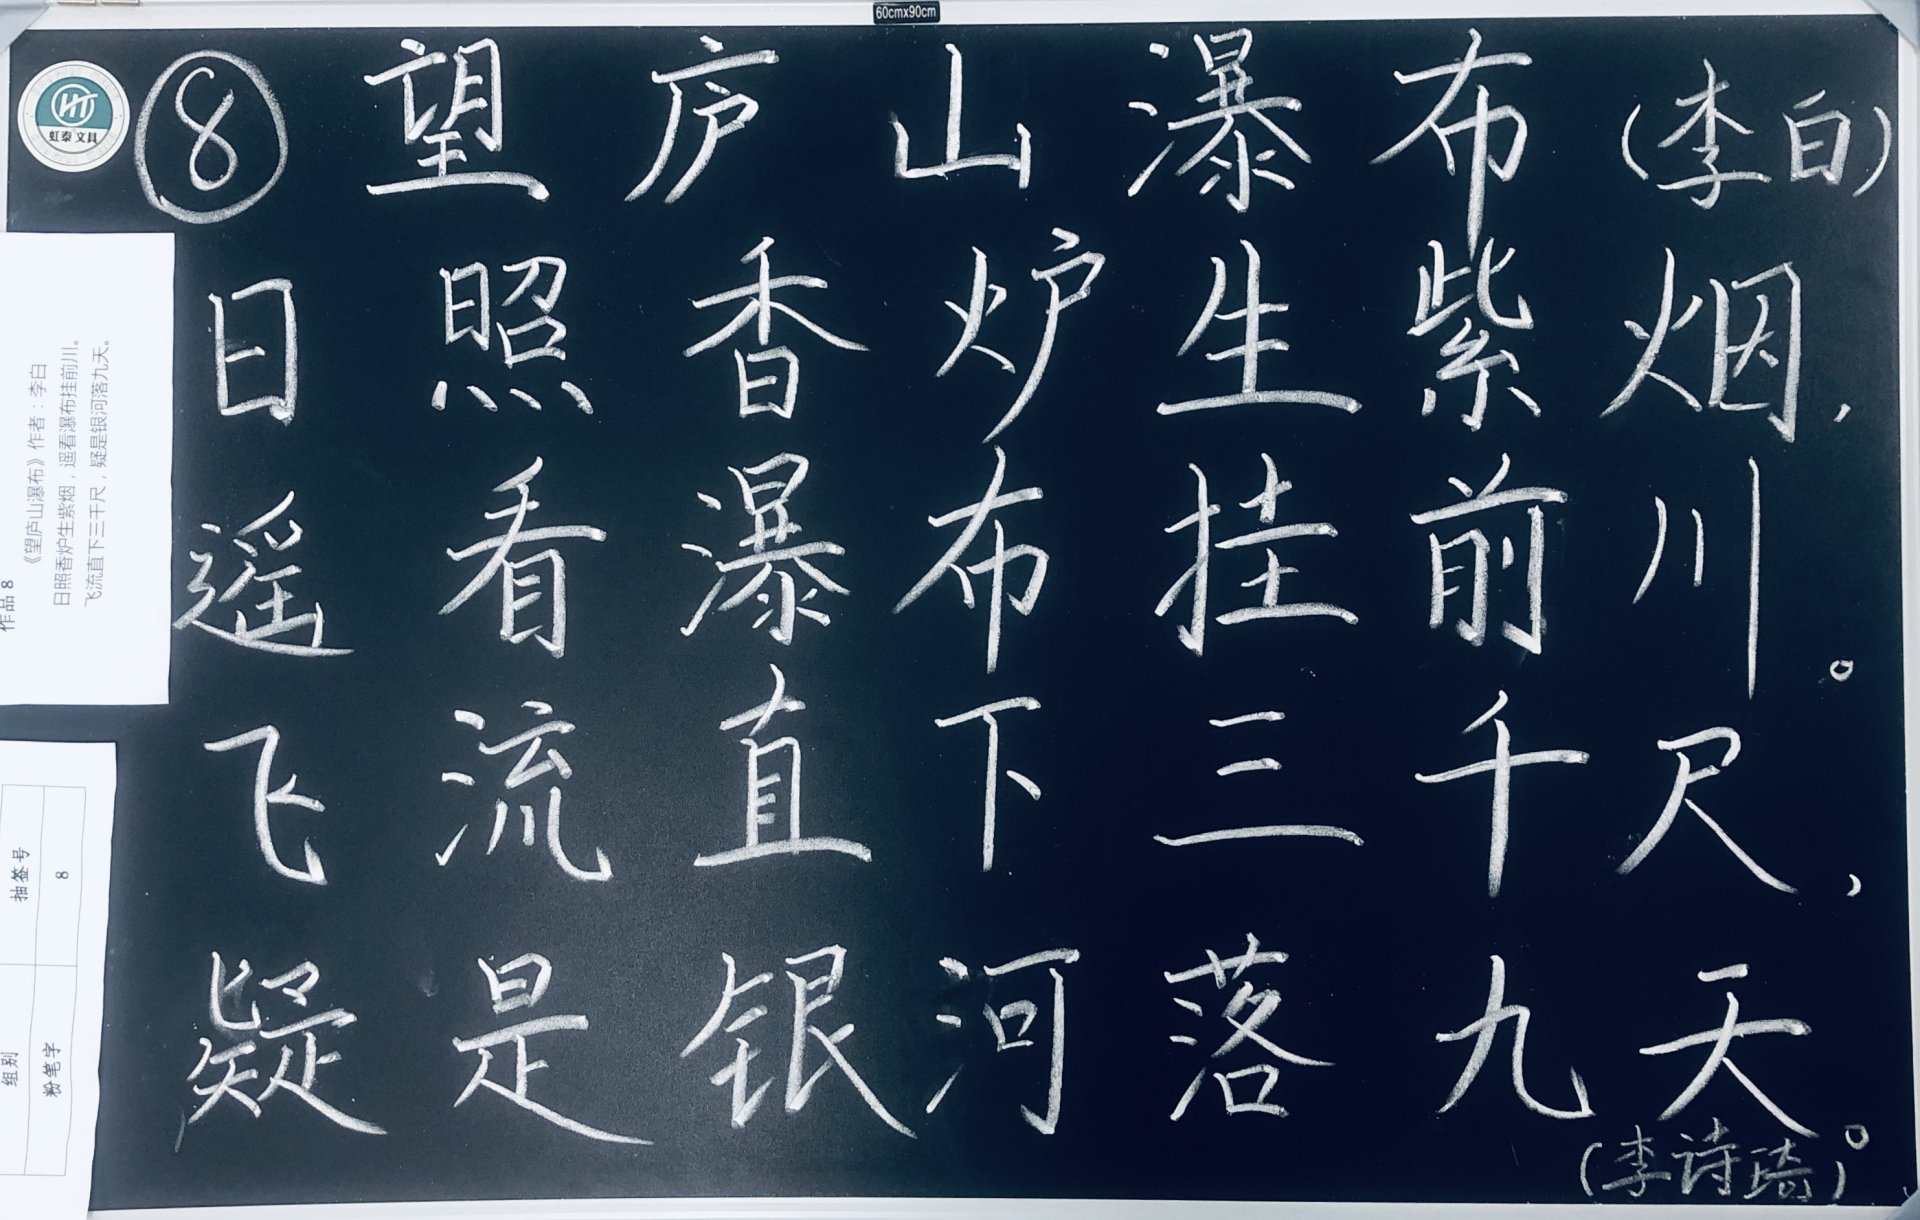 60cmx90cm
HT
虹泰文具
⑧ 望庐山瀑布(李白)
日照香炉生紫烟,
遥看瀑布挂前川。
飞流直下三千尺,
疑是银河落九天。
(李诗琦)
作品 8
《望庐山瀑布》作者：李白
日照香炉生紫烟，遥看瀑布挂前川。
飞流直下三千尺，疑是银河落九天。
组别 抽签号
粉笔字 8